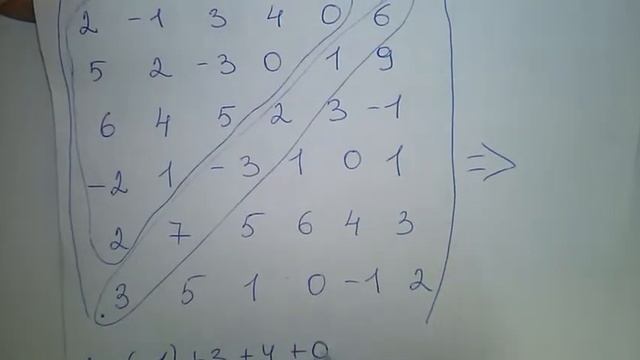 2 -1 3 4 0 6
5 2 -3 0 1 9
6 4 5 2 3 -1
-2 1 -3 1 0 1 =>
2 7 5 6 4 3
3 5 1 0 -1 2
+3 +4 +0